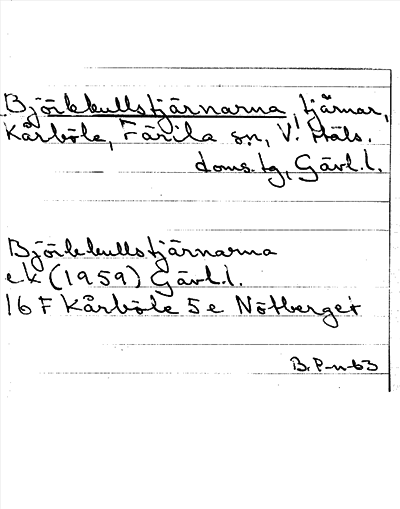 Björkkullstjärnarna, tjärnar,
Kårböle, Färila sn, V. Häls.
doms.tg, Gävl.l.
Björkkullstjärnarna
ek (1959) Gävl.l.
16 F Kårböle 5 e Nötberget
B. P-n-63